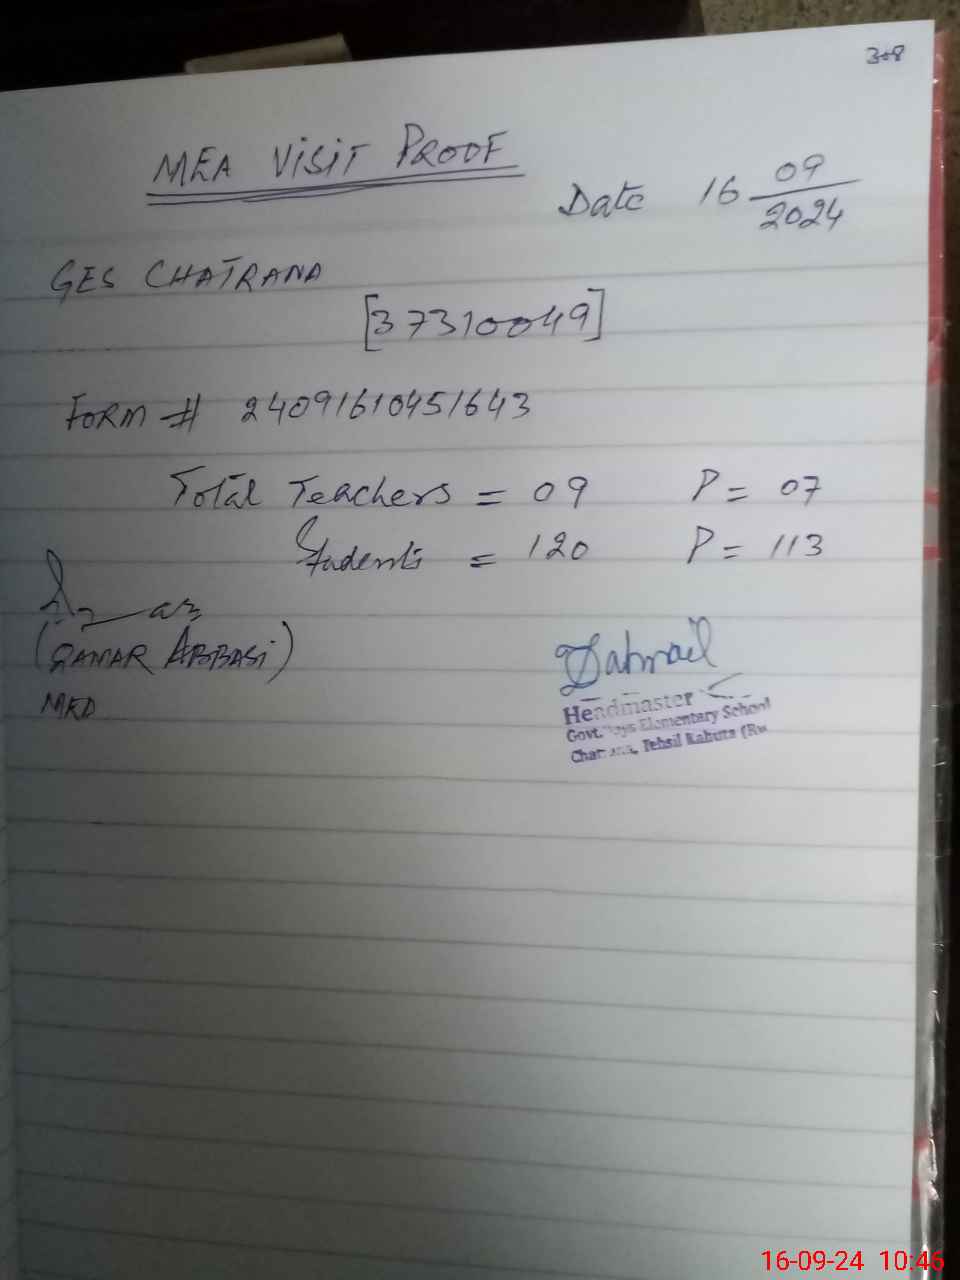 308
MEA VISIT PROOF
Date 16 09/2024
GES CHATRANA
[37310049]
FORM # 24091610451643
Total Teachers = 09 P = 07
Students = 120 P = 113
(QAMAR ABBASI)
Headmaster
Govt. Boys Elementary School
Tehsil Kahuta
16-09-24 10:46